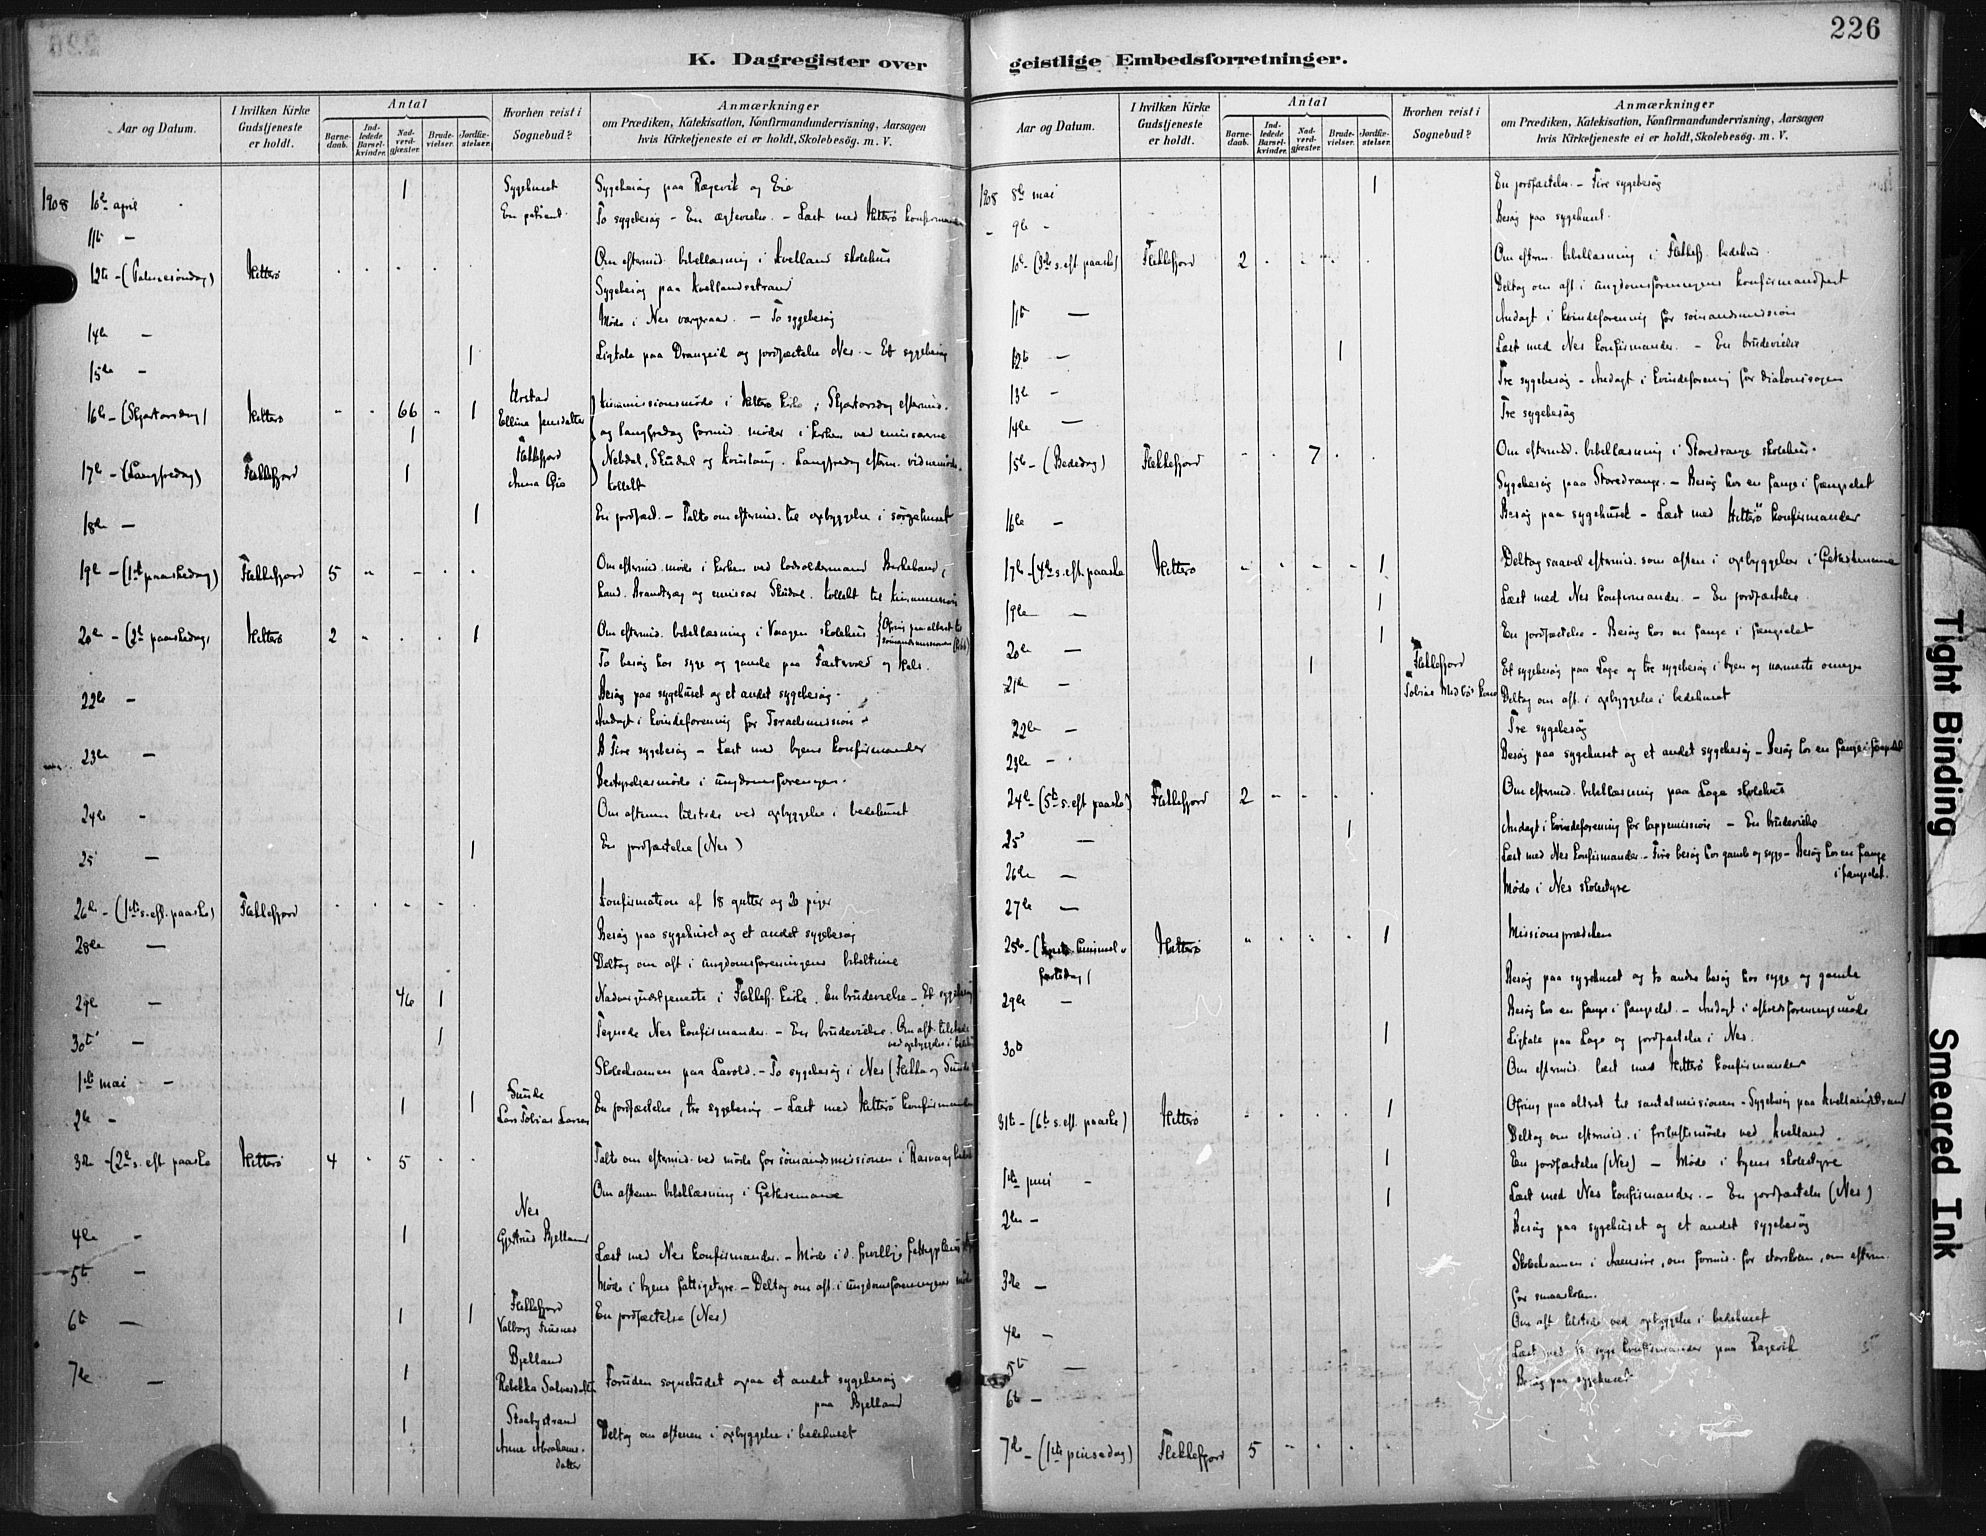 226
K. Dagregister over
geistlige Embedsforretninger.
Aar og Datum.
I hvilken Kirke Gudstjeneste er holdt.
Antal
Barnedaab.
Indledede Barselkvinder.
Nadverdgjæster.
Brudevielser.
Jordfæstelser.
Hvorhen reist i Sognebud?
Anmærkninger
om Prædiken, Katekisation, Konfirmandundervisning, Aarsagen
hvis Kirketjeneste ei er holdt, Skolebesøg. m. V.
1908 10de april 1 Sygehuset Sygebesøg paa Rægevik og Eie
En patient To sygebesøg - En ægtevielse. - Læst med Hitterø konfirmander
11te -
12te - (Palmesøndag) Hitterø Om eftermid. bibellæsning i Kvelland skolehus
Sygebesøg paa Kvellandstrand
14de - Møde i Nes værgeraad. - To sygebesøg
15de - 1 Ligtale paa Drangeid og jordfæstelse Nes. - Et sygebesøg
16de - (Skjærtorsdag) Hitterø 66 1 Ellina Jensdatter Kinamissionsmøde i Hitterø kirke i Skjærtorsdag eftermid.
1 og Langfredag formid. møder i kirken ved emissærerne
17de - (Langfredag) Flekkefjord 1 Flekkefjord Nebdal, Skudal og . Langfredag efterm. vidnemøde.
Anna Kollekt
18de - 1 En jordfæst. - Talte om eftermid. til opbyggelse i sørgehuset
19de - (1ste paaskedag) Flekkefjord 5 Om eftermid. møde i kirken ved lodsoldermand Birkeland,
kand. Brandtzæg og emissær Skudal. Kollekt til kinamissionen
20de - (2den paaskedag) Hitterø 2 1 Om eftermid. bibellæsning i Vaagen skolehus (Ofring paa alteret til sømandsmissionen
To besøg hos syge og gamle paa og
22de - Besøg paa sygehuset og et andet sygebesøg.
Andagt i kvindeforening for Israelsmission
23de - Fire sygebesøg - Læst med byens konfirmander
Bestyrelsesmøde i ungdomsforeningen.
24de - Om aftenen tilstede ved opbyggelse i bedehuset
25 - 1 En jordfæstelse (Nes)
26de - (1ste s. eft. paaske) Flekkefjord Konfirmation af 18 gutter og 20 piger
28de - Besøg paa sygehuset og et andet sygebesøg
Deltog om aft i ungdomsforeningens bibeltime
29de - 46 1 Nadvergudstjeneste i Flekkef. kirke. En brudevielse - Et sygebesøg
30te - 1 Tegnede Nes konfirmander. - En brudevielse. Om aft. tilstede
ved opbyggelse i bedehus
1ste mai - Skoleeksamen paa Lavold. - To sygebesøg i Nes (Flikka og Sunde)
2de - 1 1 Sunde
Lars Tobias Larsen En jordfæstelse, tre sygebesøg - Læst med Hitterø konfirmander
3de - (2de s. eft paaske Hitterø 4 5 Talte om eftermid. ved møde for sømandsmissionen i Rasvaag
Om aftenen bibellæsning i Gethsemane
4de - 1 Nes
Gjertrud Bjelland Læst med Nes konfirmander. - Møde i d. frivillige
5te - Møde i byens fattigstyre. - Deltog om aft. i ungdomsforeningens møde
6te - 1 1 Flekkefjord En jordfæstelse (Nes)
Valborg
7de - 1 Bjelland
Rebekka Salvesdatter Foruden sognebudet ogsaa et andet sygebesøg
paa Bjelland
1 Staabystrand Deltog om aftenen i opbyggelse i bedehuset
Anne Abrahamsdatter
Aar og Datum.
I hvilken Kirke Gudstjeneste er holdt.
Antal
Barnedaab.
Indledede Barselkvinder.
Nadverdgjæster.
Brudevielser.
Jordfæstelser.
Hvorhen reist i Sognebud?
Anmærkninger
om Prædiken, Katekisation, Konfirmandundervisning, Aarsagen
hvis Kirketjeneste ei er holdt, Skolebesøg. m. V.
1908 8de mai 1 En jordfæstelse. - Fire sygebesøg
9de - Besøg paa sygehuset.
10de - (3de s. eft. paaske) Flekkefjord 2 Om efterm. bibellæsning i Flekkefj. bedehus
Deltog om aft. i ungdomsforeningens konfirmandfest
11te - Andagt i kvindeforening for sømandsmission
12te - 1 Læst med Nes konfirmander. - En brudevielse
13de - Tre sygebesøg - Andagt i kvindeforening for diakonissesagen
14de - Tre sygebesøg
15de - (Bededag) Flekkefjord 7 Om eftermid. bibellæsning i Storedrange skolehus.
Sygebesøg paa Storedrange. - Besøg hos en fange i fængselet
16de - Besøg paa sygehuset - Læst med Hitterø konfirmander
17de - (4de s. eft. paaske Hitterø 1 Deltog saavel eftermid. som aften i opbyggelser i Gethsemane
19de - 1 Læst med Nes konfirmander. - En jordfæstelse.
20de - 1 En jordfæstelse - Besøg hos en fange i fængselet
21de - 1 Flekkefjord Et sygebesøg paa Loge og tre sygebesøg i byen og nærmeste omegn
Tobias Midbøs kone Deltog om aft. i opbyggelse i bedehuset
22de - Tre sygebesøg
23de - Besøg paa sygehuset og et andet sygebesøg - Besøg hos en fange i fængselet
24de - (5te s. eft paaske) Flekkefjord 2 Om eftermid. bibellæsning paa Loge skolehus
25 - 1 Andagt i kvindeforening for lappemission - En brudevielse
26de - Læst med Nes konfirmander - Fire besøg hos gamle og syge - Besøg hos en fange
i fængselet.
27de - Møde i Nes skolestyre
25de - ( himmelfartsdag) Hitterø 1 Missionsprædiken
Besøg paa sygehuset og to andre besøg hos syge og gamle
29de - Besøg hos en fange i fængselet. - Andagt i afholdsforeningsmøde
30te 1 Ligtale paa Loge og jordfæstelse i Nes.
Om eftermid. læst med Hitterø konfirmander
31te - (6te s. eft. paaske) Hitterø 1 Ofring paa altret til santalmissionen - Sygebesøg paa Kvellandstrand
Deltog om eftermid. i friluftsmøde ved Kvelland
1ste juni - 1 En jordfæstelse (Nes) - Møde i byens skolestyre
2den - 1 Læst med Nes konfirmander. - En jordfæstelse (Nes)
Besøg paa sygehuset og et andet sygebesøg
3de - Skoleeksamen i Aaensire, om formid. for storskolen, om efterm.
for smaaskolen.
4de - Om aft tilstede ved opbyggelse i bedehuset
5te - Læst med to syge konfirmander paa Rægevik
6te - Besøg paa sygehuset
7de - (1ste pinsedag) Flekkefjord 5
Tight Binding
Smeared Ink